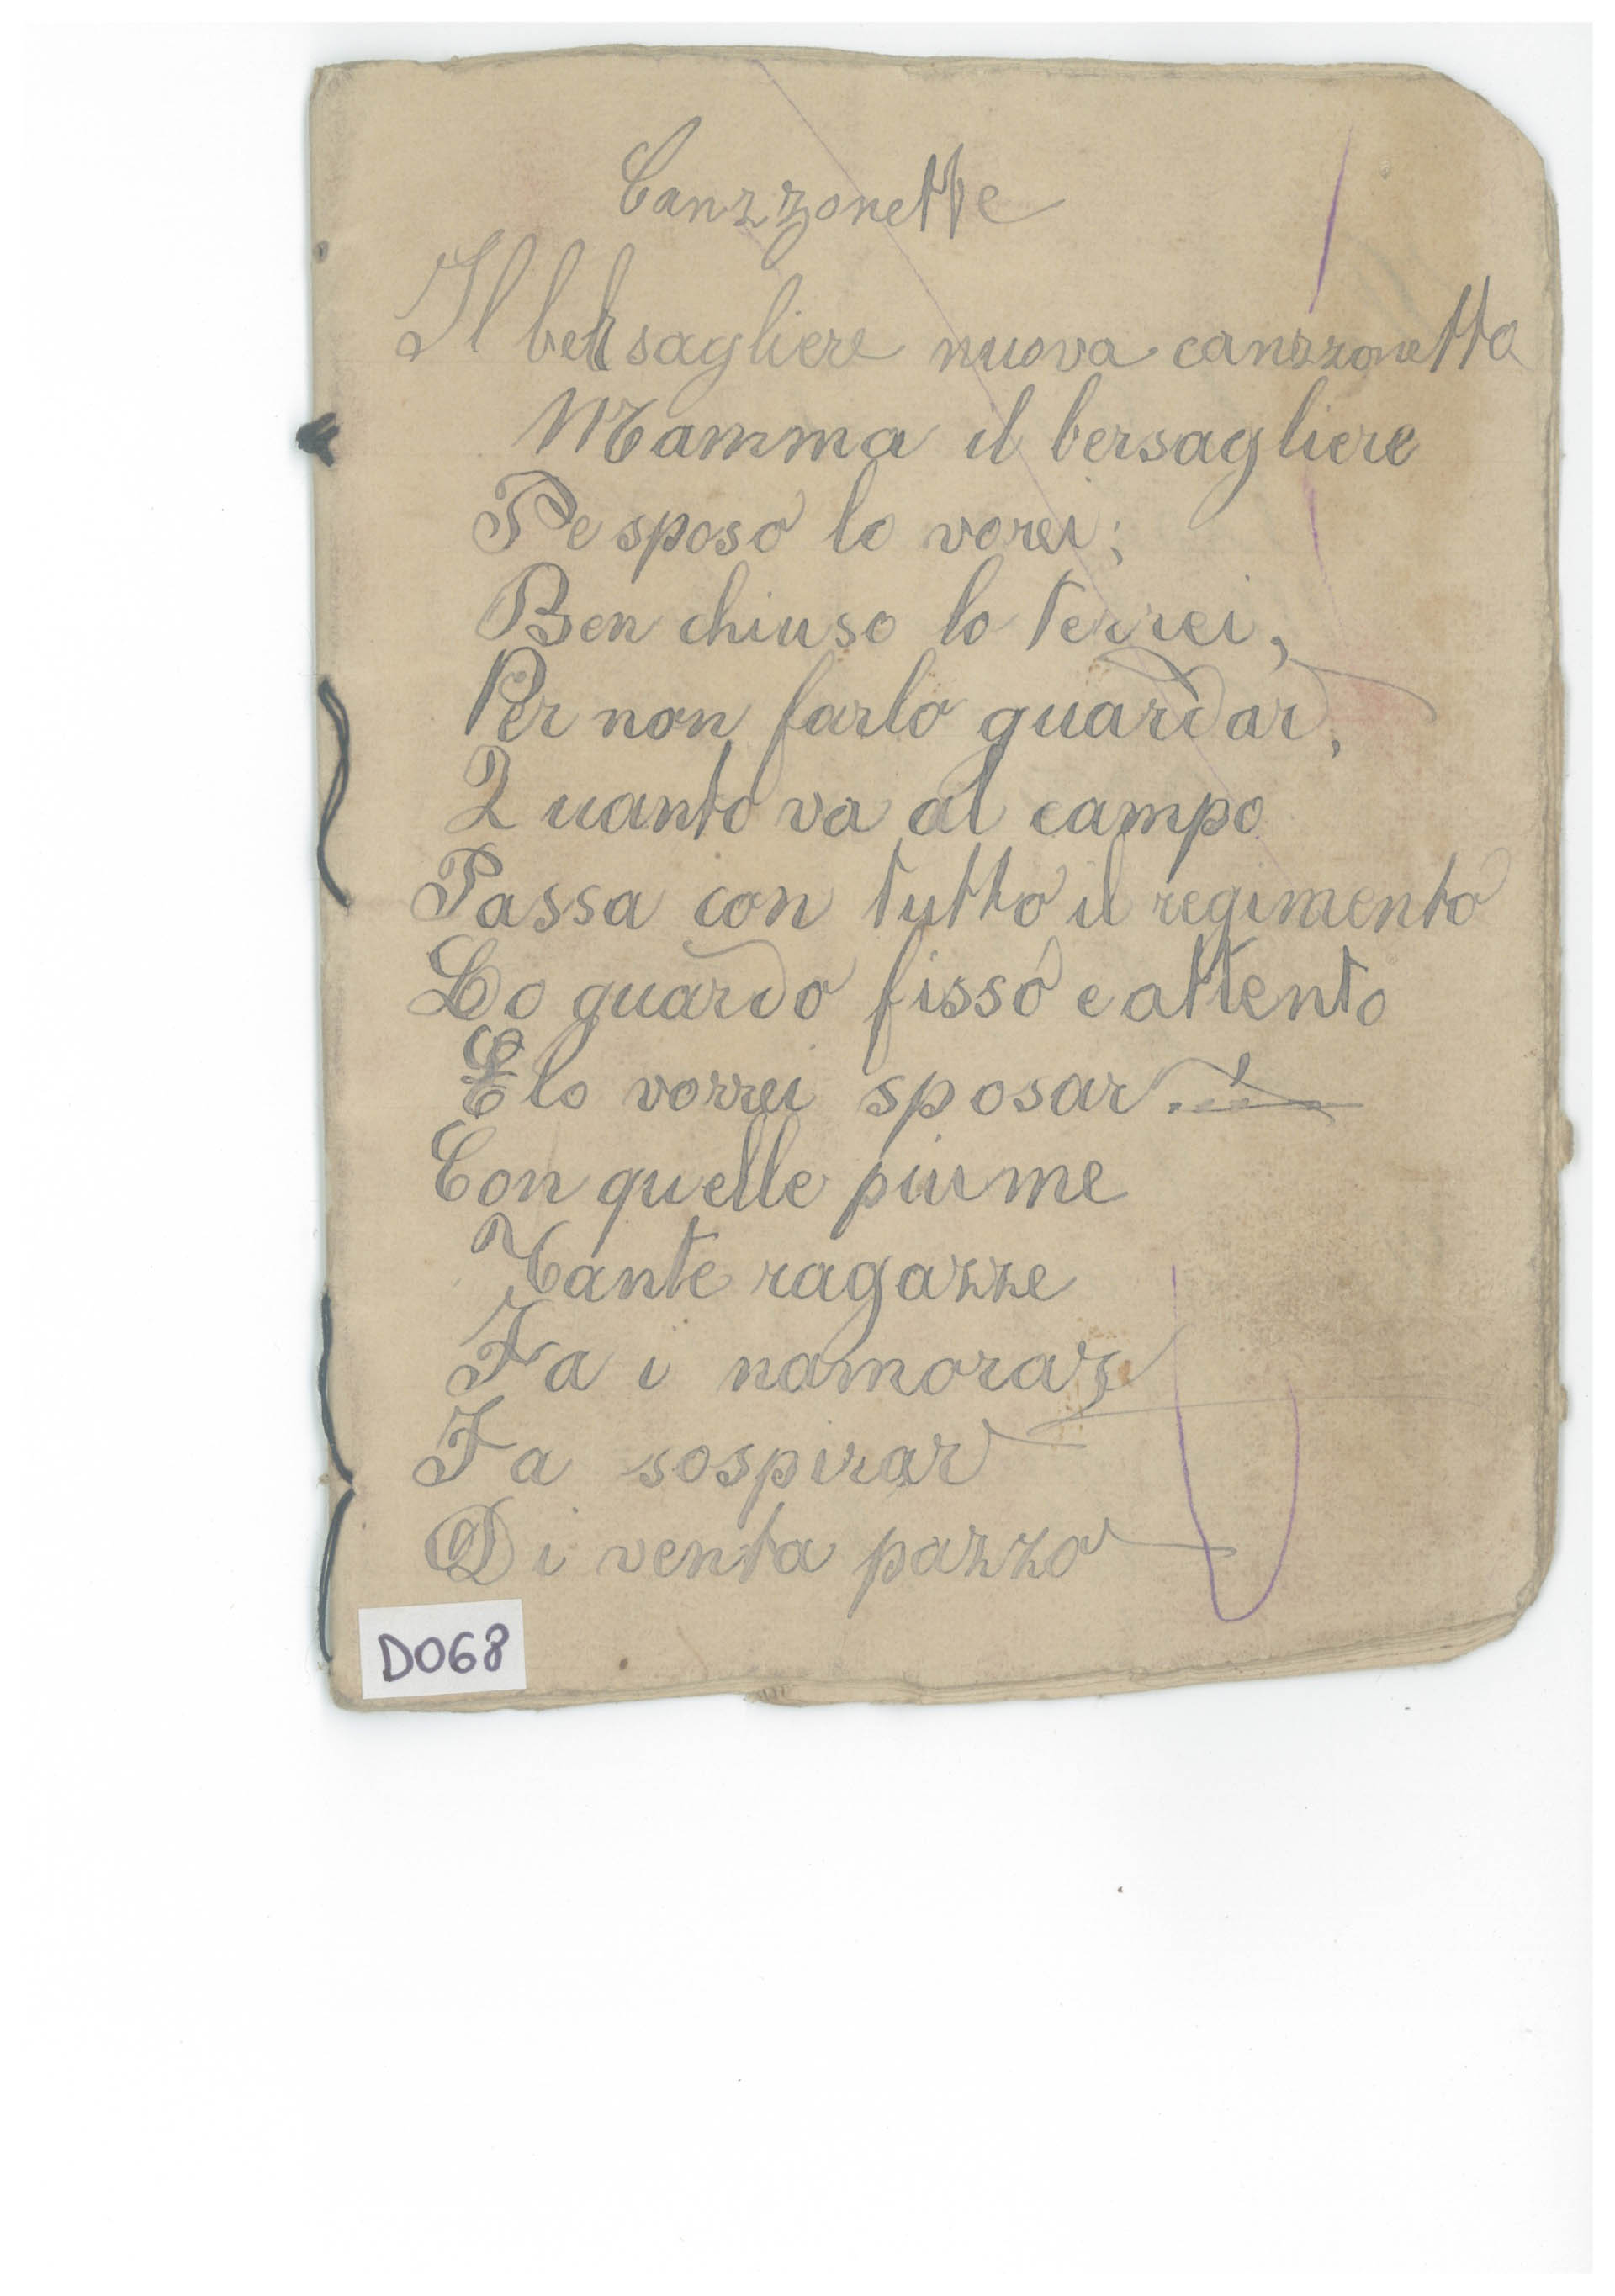 Canzzonette
Il bersagliere nuova canzzonetta
Mamma il bersagliere
Pe sposo lo vorei;
Ben chiuso lo terrei,
Per non farlo guardar,
Quanto va al campo
Passa con tutto il regimento
Lo guardo fisso e attento
E lo vorrei sposar.
Con quelle piume
Tante ragazze
Fa i namorar
Fa sospirar
Di venta pazzo
D068